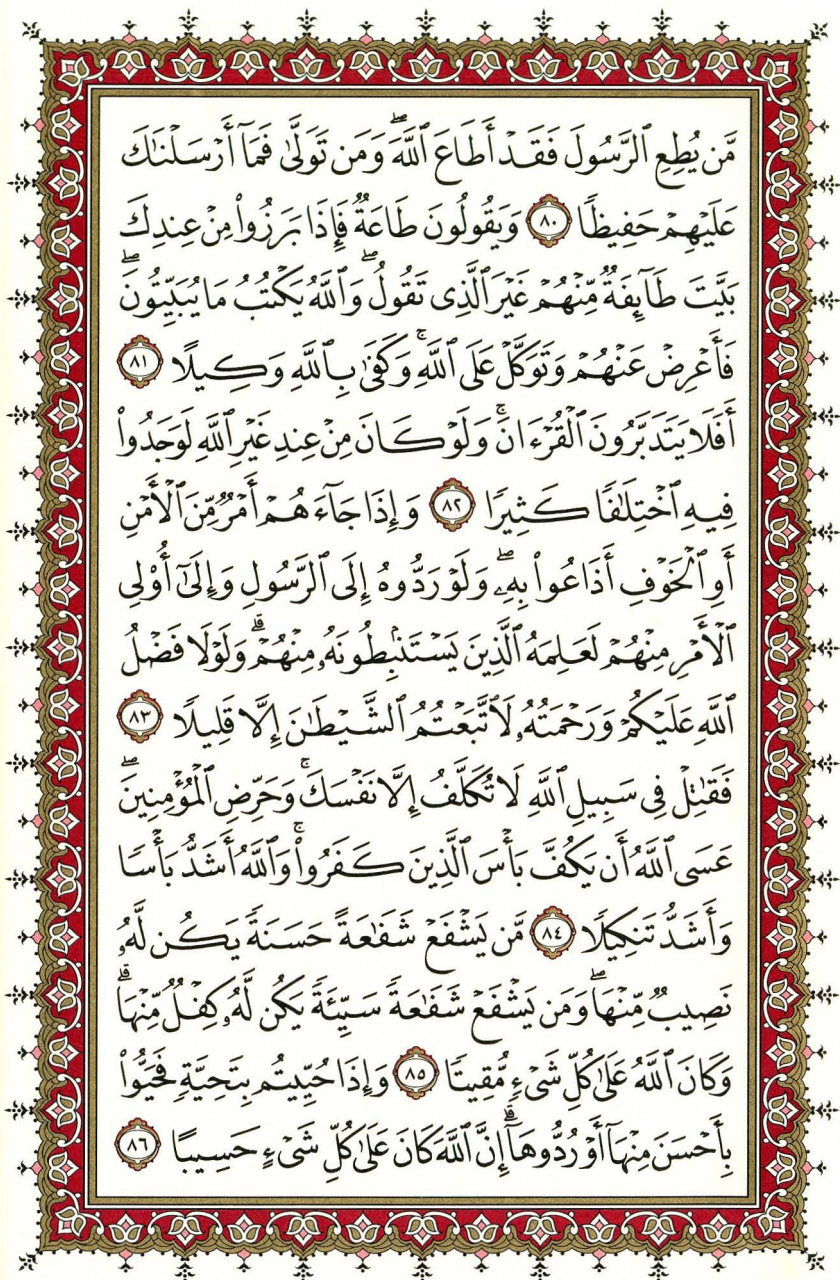 مَّن يُطِعِ ٱلرَّسُولَ فَقَدْ أَطَاعَ ٱللَّهَ ۖ وَمَن تَوَلَّىٰ فَمَآ أَرْسَلْنَٰكَ
عَلَيْهِمْ حَفِيظًا ٨٠ وَيَقُولُونَ طَاعَةٌ فَإِذَا بَرَزُوا۟ مِنْ عِندِكَ
بَيَّتَ طَآئِفَةٌ مِّنْهُمْ غَيْرَ ٱلَّذِى تَقُولُ ۖ وَٱللَّهُ يَكْتُبُ مَا يُبَيِّتُونَ ۖ
فَأَعْرِضْ عَنْهُمْ وَتَوَكَّلْ عَلَى ٱللَّهِ ۚ وَكَفَىٰ بِٱللَّهِ وَكِيلًا ٨١
أَفَلَا يَتَدَبَّرُونَ ٱلْقُرْءَانَ ۚ وَلَوْ كَانَ مِنْ عِندِ غَيْرِ ٱللَّهِ لَوَجَدُوا۟
فِيهِ ٱخْتِلَٰفًا كَثِيرًا ٨٢ وَإِذَا جَآءَهُمْ أَمْرٌ مِّنَ ٱلْأَمْنِ
أَوِ ٱلْخَوْفِ أَذَاعُوا۟ بِهِۦ ۖ وَلَوْ رَدُّوهُ إِلَى ٱلرَّسُولِ وَإِلَىٰٓ أُو۟لِى
ٱلْأَمْرِ مِنْهُمْ لَعَلِمَهُ ٱلَّذِينَ يَسْتَنۢبِطُونَهُۥ مِنْهُمْ ۗ وَلَوْلَا فَضْلُ
ٱللَّهِ عَلَيْكُمْ وَرَحْمَتُهُۥ لَٱتَّبَعْتُمُ ٱلشَّيْطَٰنَ إِلَّا قَلِيلًا ٨٣
فَقَٰتِلْ فِى سَبِيلِ ٱللَّهِ لَا تُكَلَّفُ إِلَّا نَفْسَكَ ۚ وَحَرِّضِ ٱلْمُؤْمِنِينَ ۖ
عَسَى ٱللَّهُ أَن يَكُفَّ بَأْسَ ٱلَّذِينَ كَفَرُوا۟ ۚ وَٱللَّهُ أَشَدُّ بَأْسًا
وَأَشَدُّ تَنكِيلًا ٨٤ مَّن يَشْفَعْ شَفَٰعَةً حَسَنَةً يَكُن لَّهُۥ
نَصِيبٌ مِّنْهَا ۖ وَمَن يَشْفَعْ شَفَٰعَةً سَيِّئَةً يَكُن لَّهُۥ كِفْلٌ مِّنْهَا ۗ
وَكَانَ ٱللَّهُ عَلَىٰ كُلِّ شَىْءٍ مُّقِيتًا ٨٥ وَإِذَا حُيِّيتُم بِتَحِيَّةٍ فَحَيُّوا۟
بِأَحْسَنَ مِنْهَآ أَوْ رُدُّوهَآ ۗ إِنَّ ٱللَّهَ كَانَ عَلَىٰ كُلِّ شَىْءٍ حَسِيبًا ٨٦